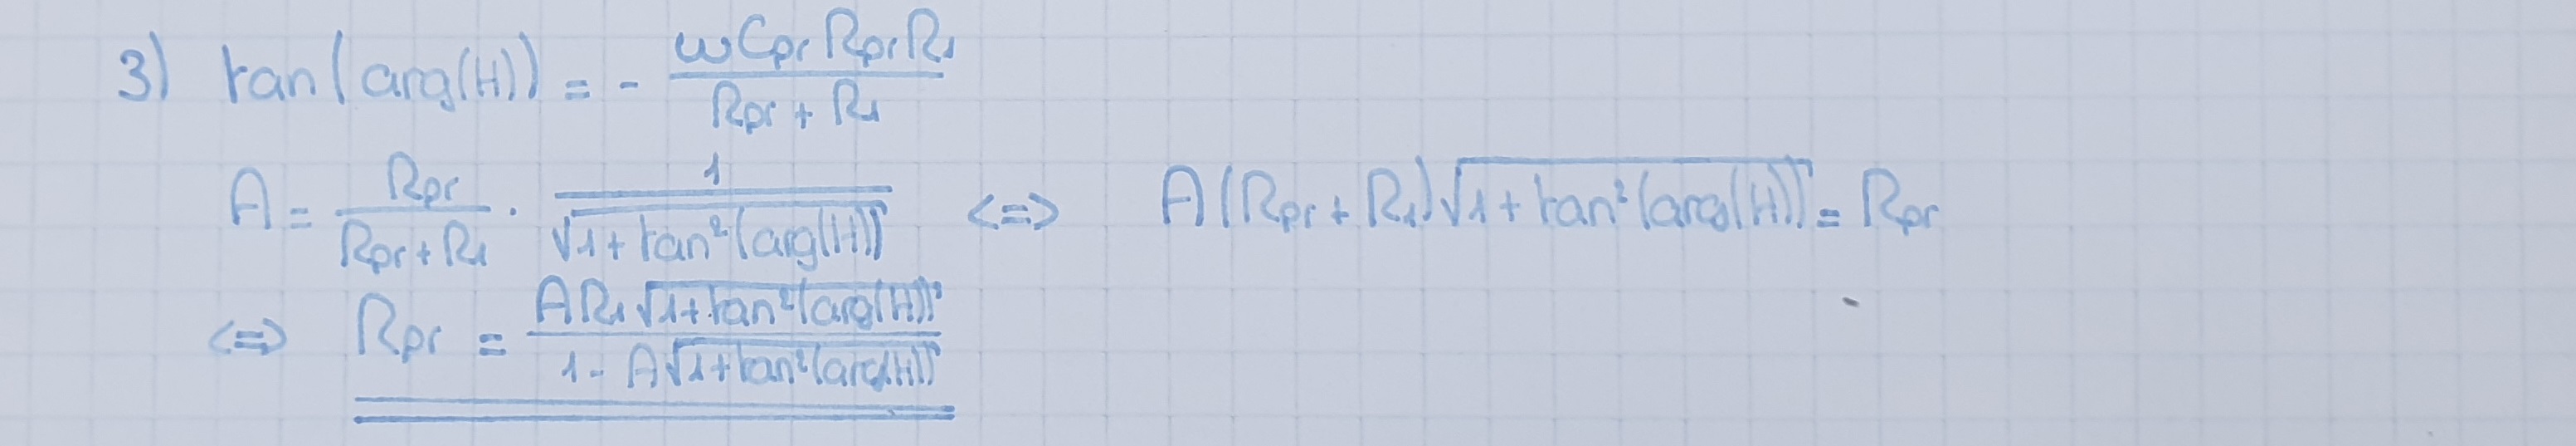 3) tan(arg(H)) = - ωCprRprR1 / (Rpr + R1)
A = Rpr / (Rpr + R1) · 1 / √(1 + tan²(arg(H))) <=> A(Rpr + R1)√(1 + tan²(arg(H))) = Rpr
<=> Rpr = AR1√(1 + tan²(arg(H))) / (1 - A√(1 + tan²(arg(H))))